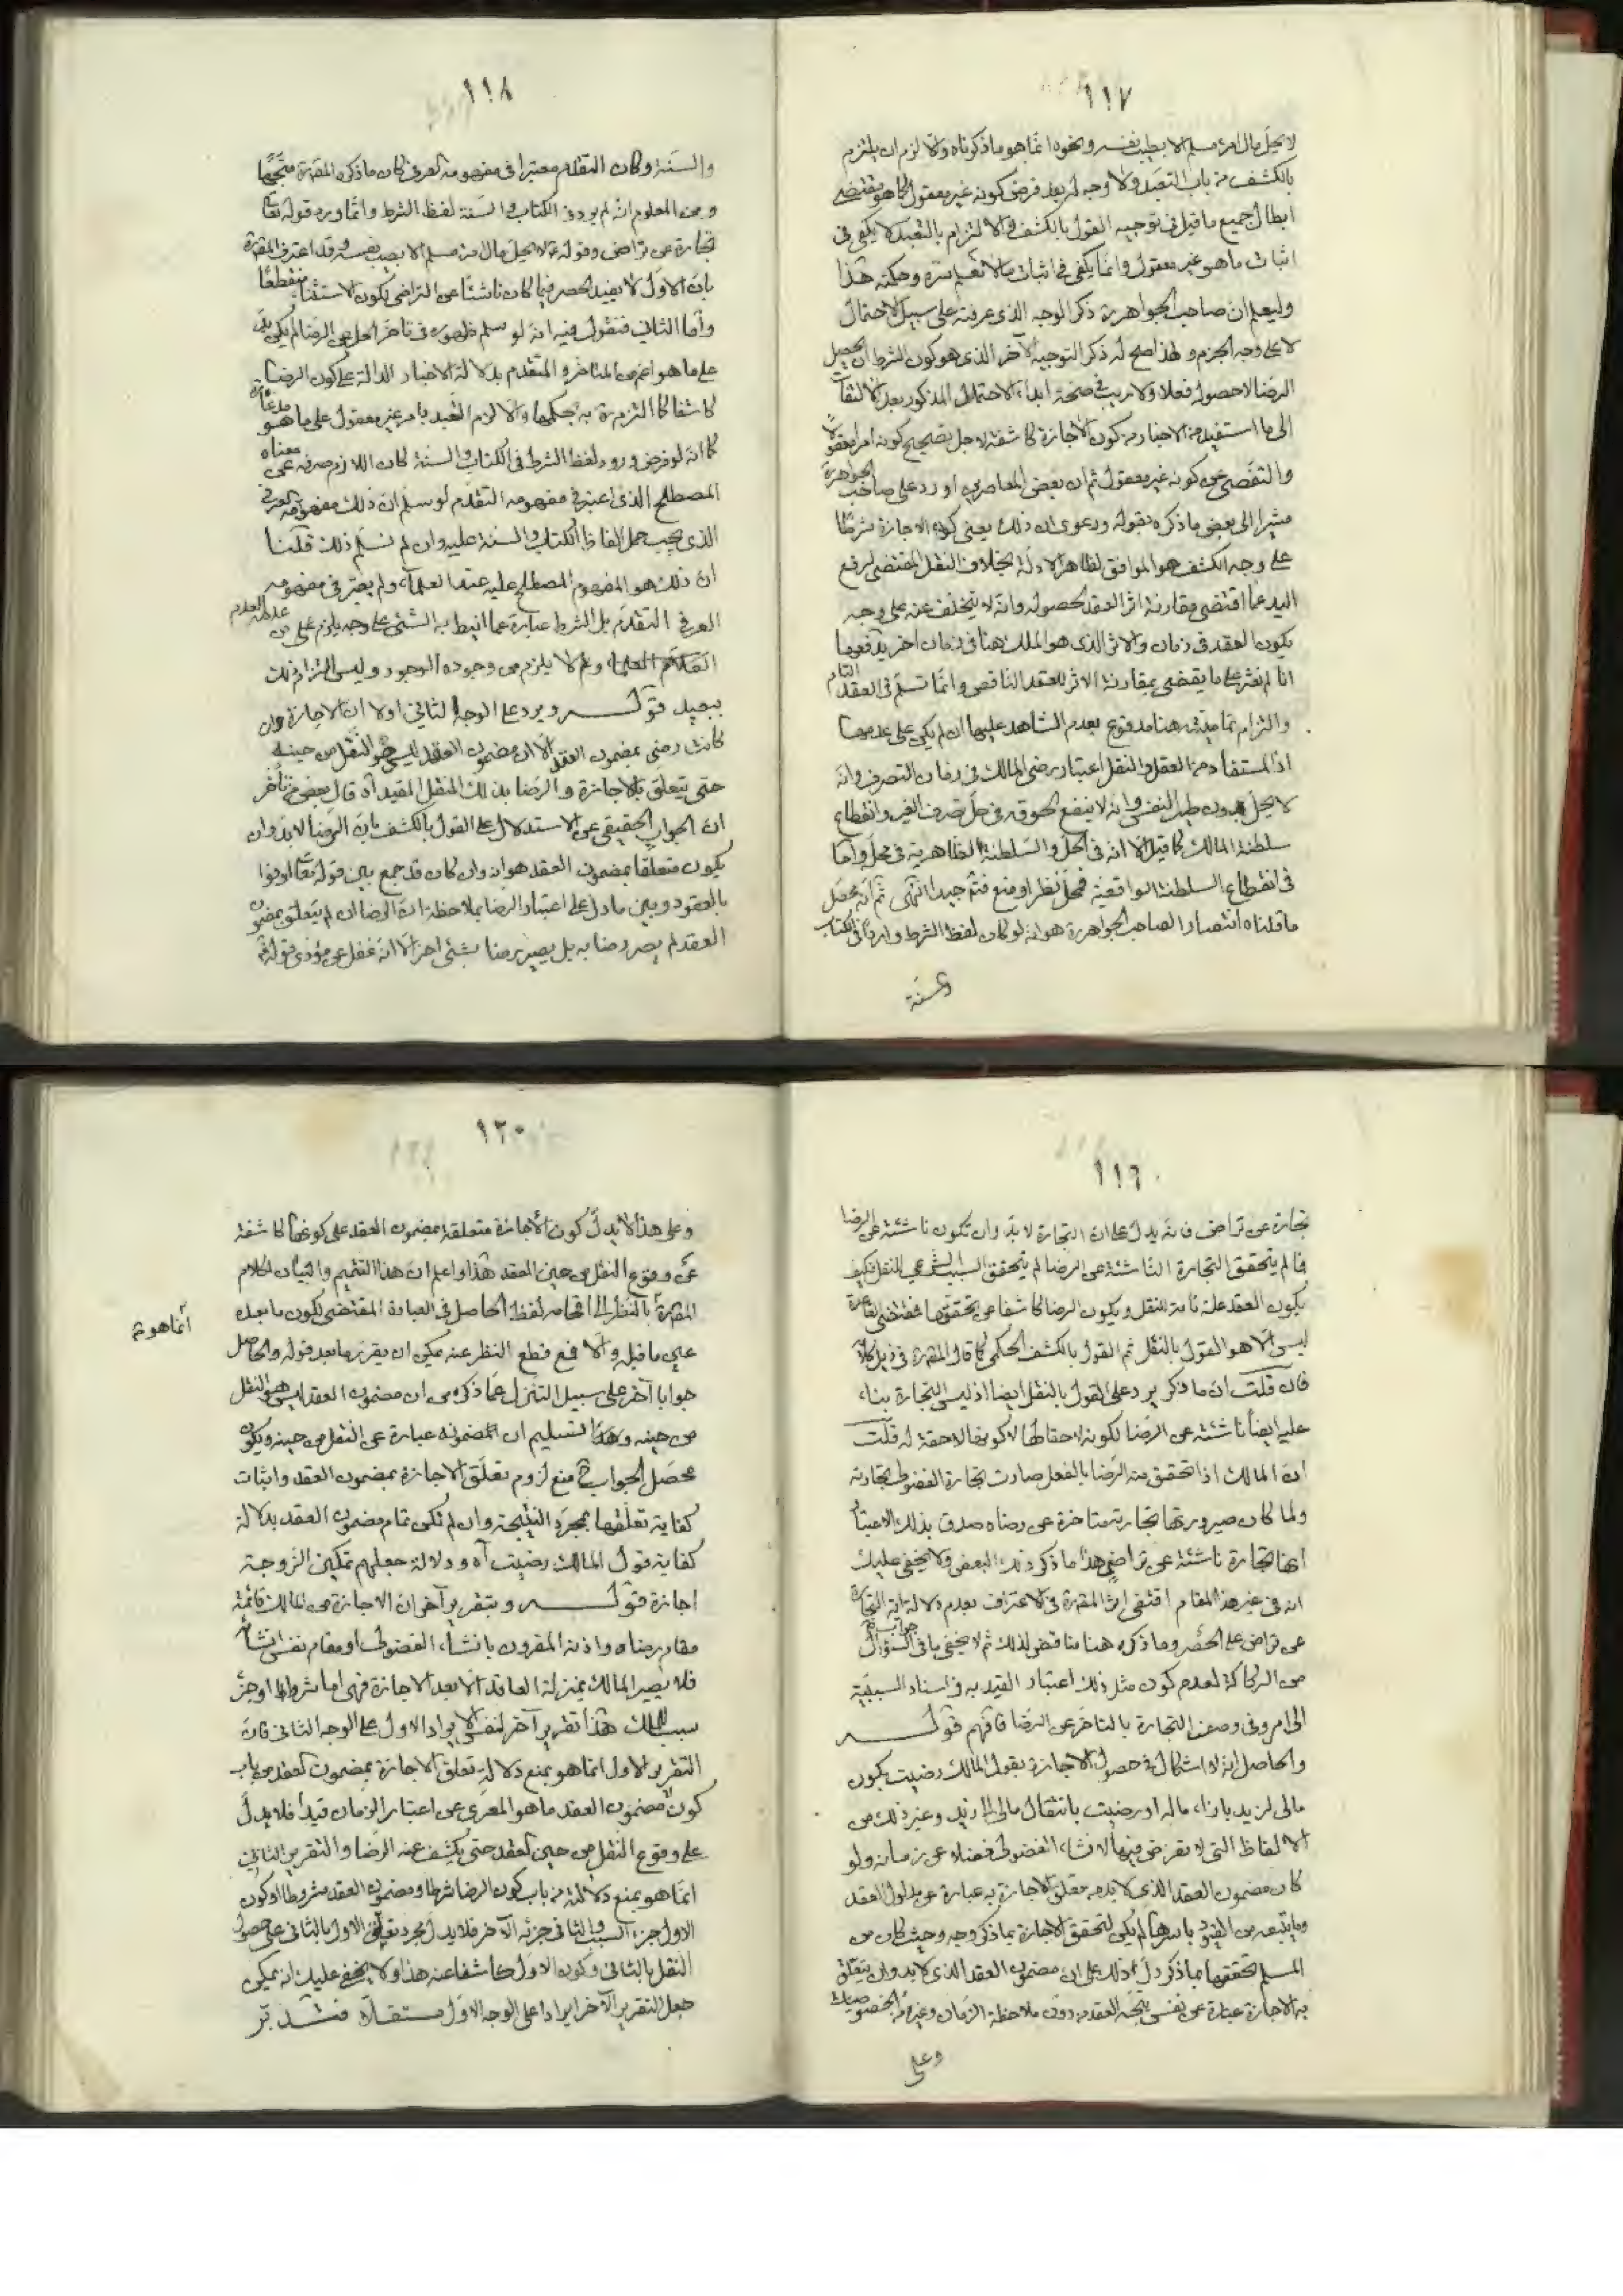 ١١٧
لا يحل مال امرء مسلم الا بطيب نفسه ونحوه انما هو ما ذكرناه والا لزم ان يلتزم
بالكشف من باب التعبد ولا وجه له بعد فرض كونه غير معقول كما هو مقتضى
ابطال جميع ما قيل في توجيه القول بالكشف والالتزام بالتعبد لا يكفى فى
اثبات ما هو غير معقول وانما يكفى فى اثبات ما لا نعلم سره وحكمته هذا
وليعلم ان صاحب الجواهر ره ذكر الوجه الذى عرفته على سبيل الاحتمال
لا على وجه الجزم ولهذا صح له ذكر التوجيه الآخر الذى هو كون الشرط ان يحصل
الرضا لا حصوله فعلا ولا ريب فى صحة ابداء الاحتمال المذكور بعد الالتفات
الى ما استفيد من الاخبار من كون الاجازة كاشفة لاجل تصحيح كونه امرا معقولا
والتفصى عن كونه غير معقول ثم ان بعض المعاصرين اورد على صاحب الجواهر ره
مشيرا الى بعض ما ذكره بقوله ودعوى ان ذلك يعنى كون الاجازة شرطا
على وجه الكشف هو الموافق لظاهر الادلة بخلاف النقل المقتضى لرفع
اليد عما اقتضى مقارنة اثر العقد لحصوله وانه لا يتخلف عنه على وجه
يكون العقد فى زمان والاثر الذى هو الملك هنا فى زمان آخر يدفعها
انا لم نعثر على ما يقضى بمقارنة الاثر للعقد الناقص وانما نسلم فى العقد التام
والتزام تماميته هنا مدفوع بعدم الشاهد عليها ان لم يكن على عدمها
اذ المستفاد من العقل والنقل اعتبار رضى المالك فى زمان التصرف وانه
لا يحل بدون طيب النفس وانه لا ينفع لحوقه فى حل تصرف الغير وانقطاع
سلطنة المالك كما قيل الا انه فى الحل والسلطنة الظاهرية فى محله واما
فى انقطاع السلطنة الواقعية فمحل نظر او منع فتم جيدا انتهى ثم انه محصل
ما قلناه انتصارا لصاحب الجواهر ره هو انه لو كان لفظ الشرط واردا فى الكتاب
والسنة
١١٨
والسنة وكان التقدم معتبرا فى مفهومه العرفى كان ما ذكره المص ره متجها
ومن المعلوم انه لم يرد فى الكتاب والسنة لفظ الشرط وانما ورد قوله تعا
تجارة عن تراض وقوله ع لا يحل مال امرء مسلم الا بطيب نفسه وقد اعترف المص ره
بان الاول لا يفيد الحصر فيما كان ناشئا عن التراضى لكون الاستثناء منقطعا
واما الثانى فنقول فيه انه لو سلم ظهوره فى تاخر الحل عن الرضا لم يكن بد
على ما هو اعم من المتاخر والمتقدم بدلالة الاخبار الدالة على كون الرضا
كاشفا كما التزم ره به حكما والا لزم التعبد بامر غير معقول على ما هو مدعاه
كما انه لو فرض ورود لفظ الشرط فى الكتاب والسنة لكان اللازم صرفه عن معناه
المصطلح الذى اعتبر فى مفهومه التقدم لو سلم ان ذلك مفهومه العرفى
الذى يجب حمل الفاظ الكتاب والسنة عليه وان لم نسلم ذلك قلنا
ان ذلك هو المفهوم المصطلح عليه عند العلماء ولم يعتبر فى مفهومه
العرفى التقدم بل الشرط عبارة عما انيط به الشئ على وجه يلزم من عدمه العدم
ولا يلزم من وجوده الوجود وليس التزام ذلك
ببعيد قوله ويرد على الوجه الثانى اولا ان الاجازة وان
كانت رضى بمضمون العقد الا ان مضمون العقد ليس هو النقل من حينه
حتى يتعلق الاجازة والرضا بذلك النقل المقيد اه قال بعض من تأخر
ان الجواب الحقيقى عن الاستدلال على القول بالكشف بان الرضا لا بد وان
يكون متعلقا بمضمون العقد هو انه وان كان قد جمع بين قوله تعا اوفوا
بالعقود وبين ما دل على اعتبار الرضا بملاحظة ان الرضا ان لم يتعلق بمضمون
العقد لم يصر رضا به بل يصير رضا بشئ اخر الا انه غفل عن مؤدى قوله تعا
١١٩
تجارة عن تراض فانه يدل على ان التجارة لا بد وان تكون ناشئة عن الرضا
فما لم يتحقق التجارة الناشئة عن الرضا لم يتحقق السبب الشرعى للنقل فكيف
يكون العقد علة تامة للنقل ويكون الرضا كاشفا عن تحققها فمقتضى القاعدة
ليس الا هو القول بالنقل ثم القول بالكشف الحكمى كما قال المص ره فى ذيل كلامه
فان قلت ان ما ذكر يرد على القول بالنقل ايضا اذ ليس التجارة بناء
عليه ايضا ناشئة عن الرضا لكونه لاحقا لها لا كونها لاحقة له قلت
ان المالك اذا تحقق منه الرضا بالفعل صارت تجارة الفضولى تجارته
ولما كان صيرورتها تجارته متاخرة عن رضاه صدق بذلك الاعتبار
انها تجارة ناشئة عن تراض هذا ما ذكره ذلك البعض ولا يخفى عليك
انه فى غير هذا المقام اقتفى اثر المص ره فى الاعتراف بعدم دلالة اية التجارة
عن تراض على الحصر وما ذكره هنا مناقض لذلك ثم لا يخفى ما فى جواب السؤال
من الركاكة لعدم كون مثل ذلك اعتبار القيد به فى اسناد السببية
الى امر وفى وصف التجارة بالتاخر عن الرضا فافهم قوله
والحاصل انه لا اشكال فى حصول الاجازة بقول المالك رضيت بكون
مالى لزيد بازاء ماله او رضيت بانتقال مالى الى زيد وغير ذلك من
الالفاظ التى لا تعرض فيها لانشاء الفضولى فضلا عن زمانه ولو
كان مضمون العقد الذى لا بد من تعلق الاجازة به عبارة عن مدلول العقد
وما يتبعه من القيود باسرها لم يكن لتحقق الاجازة بما ذكر وجه وحيث كان من
المسلم تحققها بما ذكر دل ذلك على ان مضمون العقد الذى لا بد وان يتعلق
به الاجازة عبارة عن نفس نتيجة العقد من دون ملاحظة الزمان وغيره من الخصوصيات
وعلى
١٢٠
وعلى هذا لا يدل كون الاجازة متعلقة بمضمون العقد على كونها كاشفة
عن وقوع النقل من حين العقد هذا واعلم ان هذا التتميم والبيان لكلام
المص ره بالنظر الى اقحام لفظ الحاصل فى العبارة المقتضى لكون ما بعده
عين ما قبله والا فمع قطع النظر عنه يمكن ان يقرر ما بعد قوله والحاصل
انما هو
جوابا آخر على سبيل التنزل عما ذكره من ان مضمون العقد ليس هو النقل
من حينه وهذا التسليم ان مضمونه عبارة عن النقل من حينه ويكون
محصل الجواب ح منع لزوم تعلق الاجازة بمضمون العقد واثبات
كفاية تعلقها بمجرد النتيجة وان لم تكن تمام مضمون العقد بدلالة
كفاية قول المالك رضيت آه ودلالة جعلهم تمكين الزوجة
اجازة قوله وبتقرير آخر ان الاجازة من المالك قائمة
مقام رضاه واذنه المقرون بانشاء الفضولى او مقام نفس انشائه
فلا يصير المالك بمنزلة العاقد الا بعد الاجازة فهى اما شرط او جزء
سبب للملك هذا تقرير آخر لنفس الايراد الاول على الوجه الثانى فان
التقرير الاول انما هو بمنع دلالة تعلق الاجازة بمضمون العقد من باب
كون مضمون العقد ما هو المعرى عن اعتبار الزمان قيدا فلا يدل
على وقوع النقل من حين العقد حتى يكشف عنه الرضا والتقرير الثانى
انما هو بمنع دلالته من باب كون الرضا شرطا ومضمون العقد مشروطا او كون
الاول جزء السبب والثانى جزئه الآخر فلا يدل مجرد تعلق الاول بالثانى على حصول
النقل بالثانى وكون الاول كاشفا عنه هذا ولا يخفى عليك انه يمكن
جعل التقرير الآخر ايرادا على الوجه الاول مستقلا فتدبر